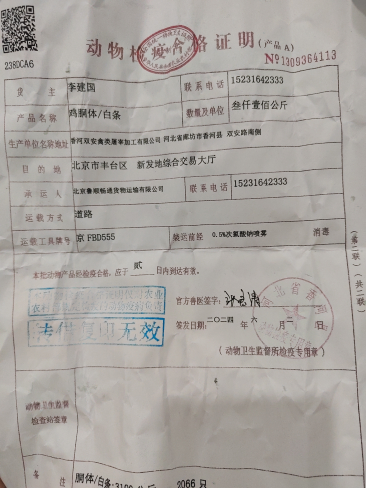 动物检疫合格证明(产品A)
238DCA6
No1309364113
货主 李建国 联系电话 15231642333
产品名称 鸡胴体/白条 数量及单位 叁仟壹佰公斤
生产单位名称地址 香河双安禽类屠宰加工有限公司 河北省廊坊市香河县 双安路南侧
目的地 北京市丰台区 新发地综合交易大厅
承运人 北京鲁顺畅通货物运输有限公司 联系电话 15231642333
运载方式 道路
运载工具牌号 京FBD555 装运前经 0.5%次氯酸钠喷雾 消毒
本批动物产品经检疫合格,应于 贰 日内到达有效。
官方兽医签字:
复印无效
签发日期:二〇二四年六月二日
(动物卫生监督所检疫专用章)
动物卫生监督
检查站签章
备注 胴体/白条:3100公斤 2066只
(第二联)(共二联)